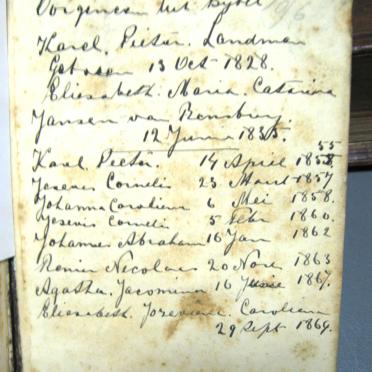 Overgenomen uit Bybel 96
Karel. Pieter. Landman
Geboren 13 Oct 1828.
Eliesabeth. Maria. Catarina
Jansen van Rensburg.
12 Junie 1835.
55
Karel Pieter. 14 April 1858
Cornelis 23 Maart 1857
Johanna Carolina 6 Mei 1858.
Cornelis 5 Febr 1860.
Johannes Abraham 16 Jan 1862
Nicolaas 20 Nov 1863
Agatha. Jacomina 16 Junie 1867.
Eliesabeth. Carolina
29 Sept 1869.